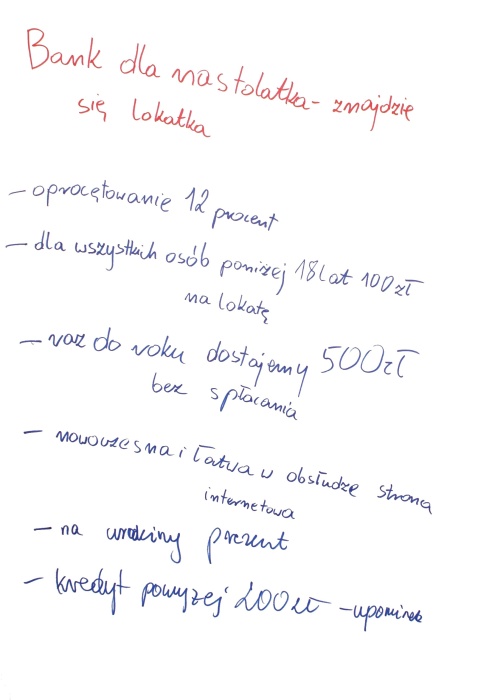 Bank dla nastolatka - znajdzie
się lokatka
- oprocętowanie 12 procent
- dla wszystkich osób poniżej 18 lat 100 zł
na lokatę
- raz do roku dostajemy 500 zł
bez spłacania
- nowoczesna i łatwa w obsłudze strona
internetowa
- na urodziny prezent
- kredyt powyzej 200 zł - upominek